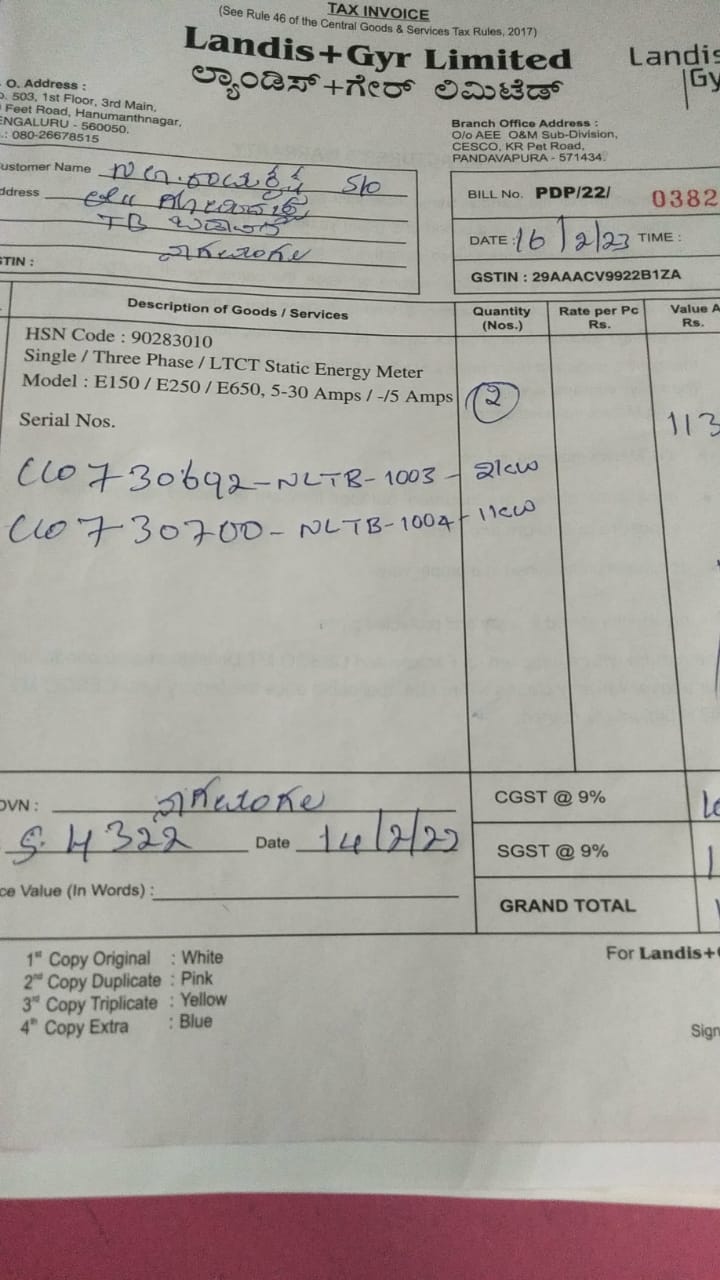 TAX INVOICE
(See Rule 46 of the Central Goods & Services Tax Rules, 2017)
Landis+Gyr Limited
ಲ್ಯಾಂಡಿಸ್+ಗೇರ್ ಲಿಮಿಟೆಡ್
Landis
Gy
O. Address :
503, 1st Floor, 3rd Main,
Feet Road, Hanumanthnagar,
ENGALURU - 560050.
.: 080-26678515
Branch Office Address :
O/o AEE O&M Sub-Division,
CESCO, KR Pet Road,
PANDAVAPURA - 571434.
ustomer Name S/o
ddress
TB
STIN :
BILL No. PDP/22/ 0382
DATE : 16/2/23 TIME :
GSTIN : 29AAACV9922B1ZA
Description of Goods / Services
Quantity (Nos.)
Rate per Pc Rs.
Value A
Rs.
HSN Code : 90283010
Single / Three Phase / LTCT Static Energy Meter
Model : E150 / E250 / E650, 5-30 Amps / -/5 Amps
2
Serial Nos.
113
730692-NLTB-1003-
730700-NLTB-1004-
OVN :
4322 Date 14/2/22
ce Value (In Words) :
CGST @ 9%
SGST @ 9%
GRAND TOTAL
1st Copy Original : White
2nd Copy Duplicate : Pink
3rd Copy Triplicate : Yellow
4th Copy Extra : Blue
For Landis+G
Sign